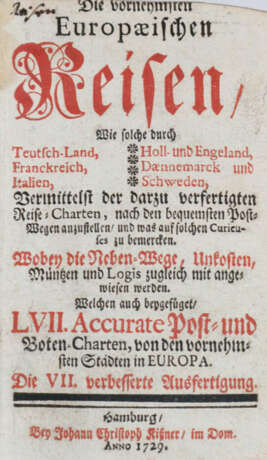 Reisen
Die vornehmsten
Europæischen
Reisen/
Wie solche durch
Teutsch-Land, Holl- und Engeland,
Franckreich, Dænnemarck und
Italien, Schweden,
Vermittelst der darzu verfertigten
Reise-Charten, nach den bequemsten Post-
Wegen anzustellen/ und was auf solchen Curieu-
ses zu bemercken.
Wobey die Neben-Wege, Unkosten,
Müntzen und Logis zugleich mit ange-
wiesen werden.
Welchen auch beygefüget/
LVII. Accurate Post- und
Boten-Charten, von den vornehm-
sten Städten in EUROPA.
Die VII. verbesserte Ausfertigung.
Hamburg/
Bey Johann Christoph Kißner/ im Dom.
ANNO 1729.